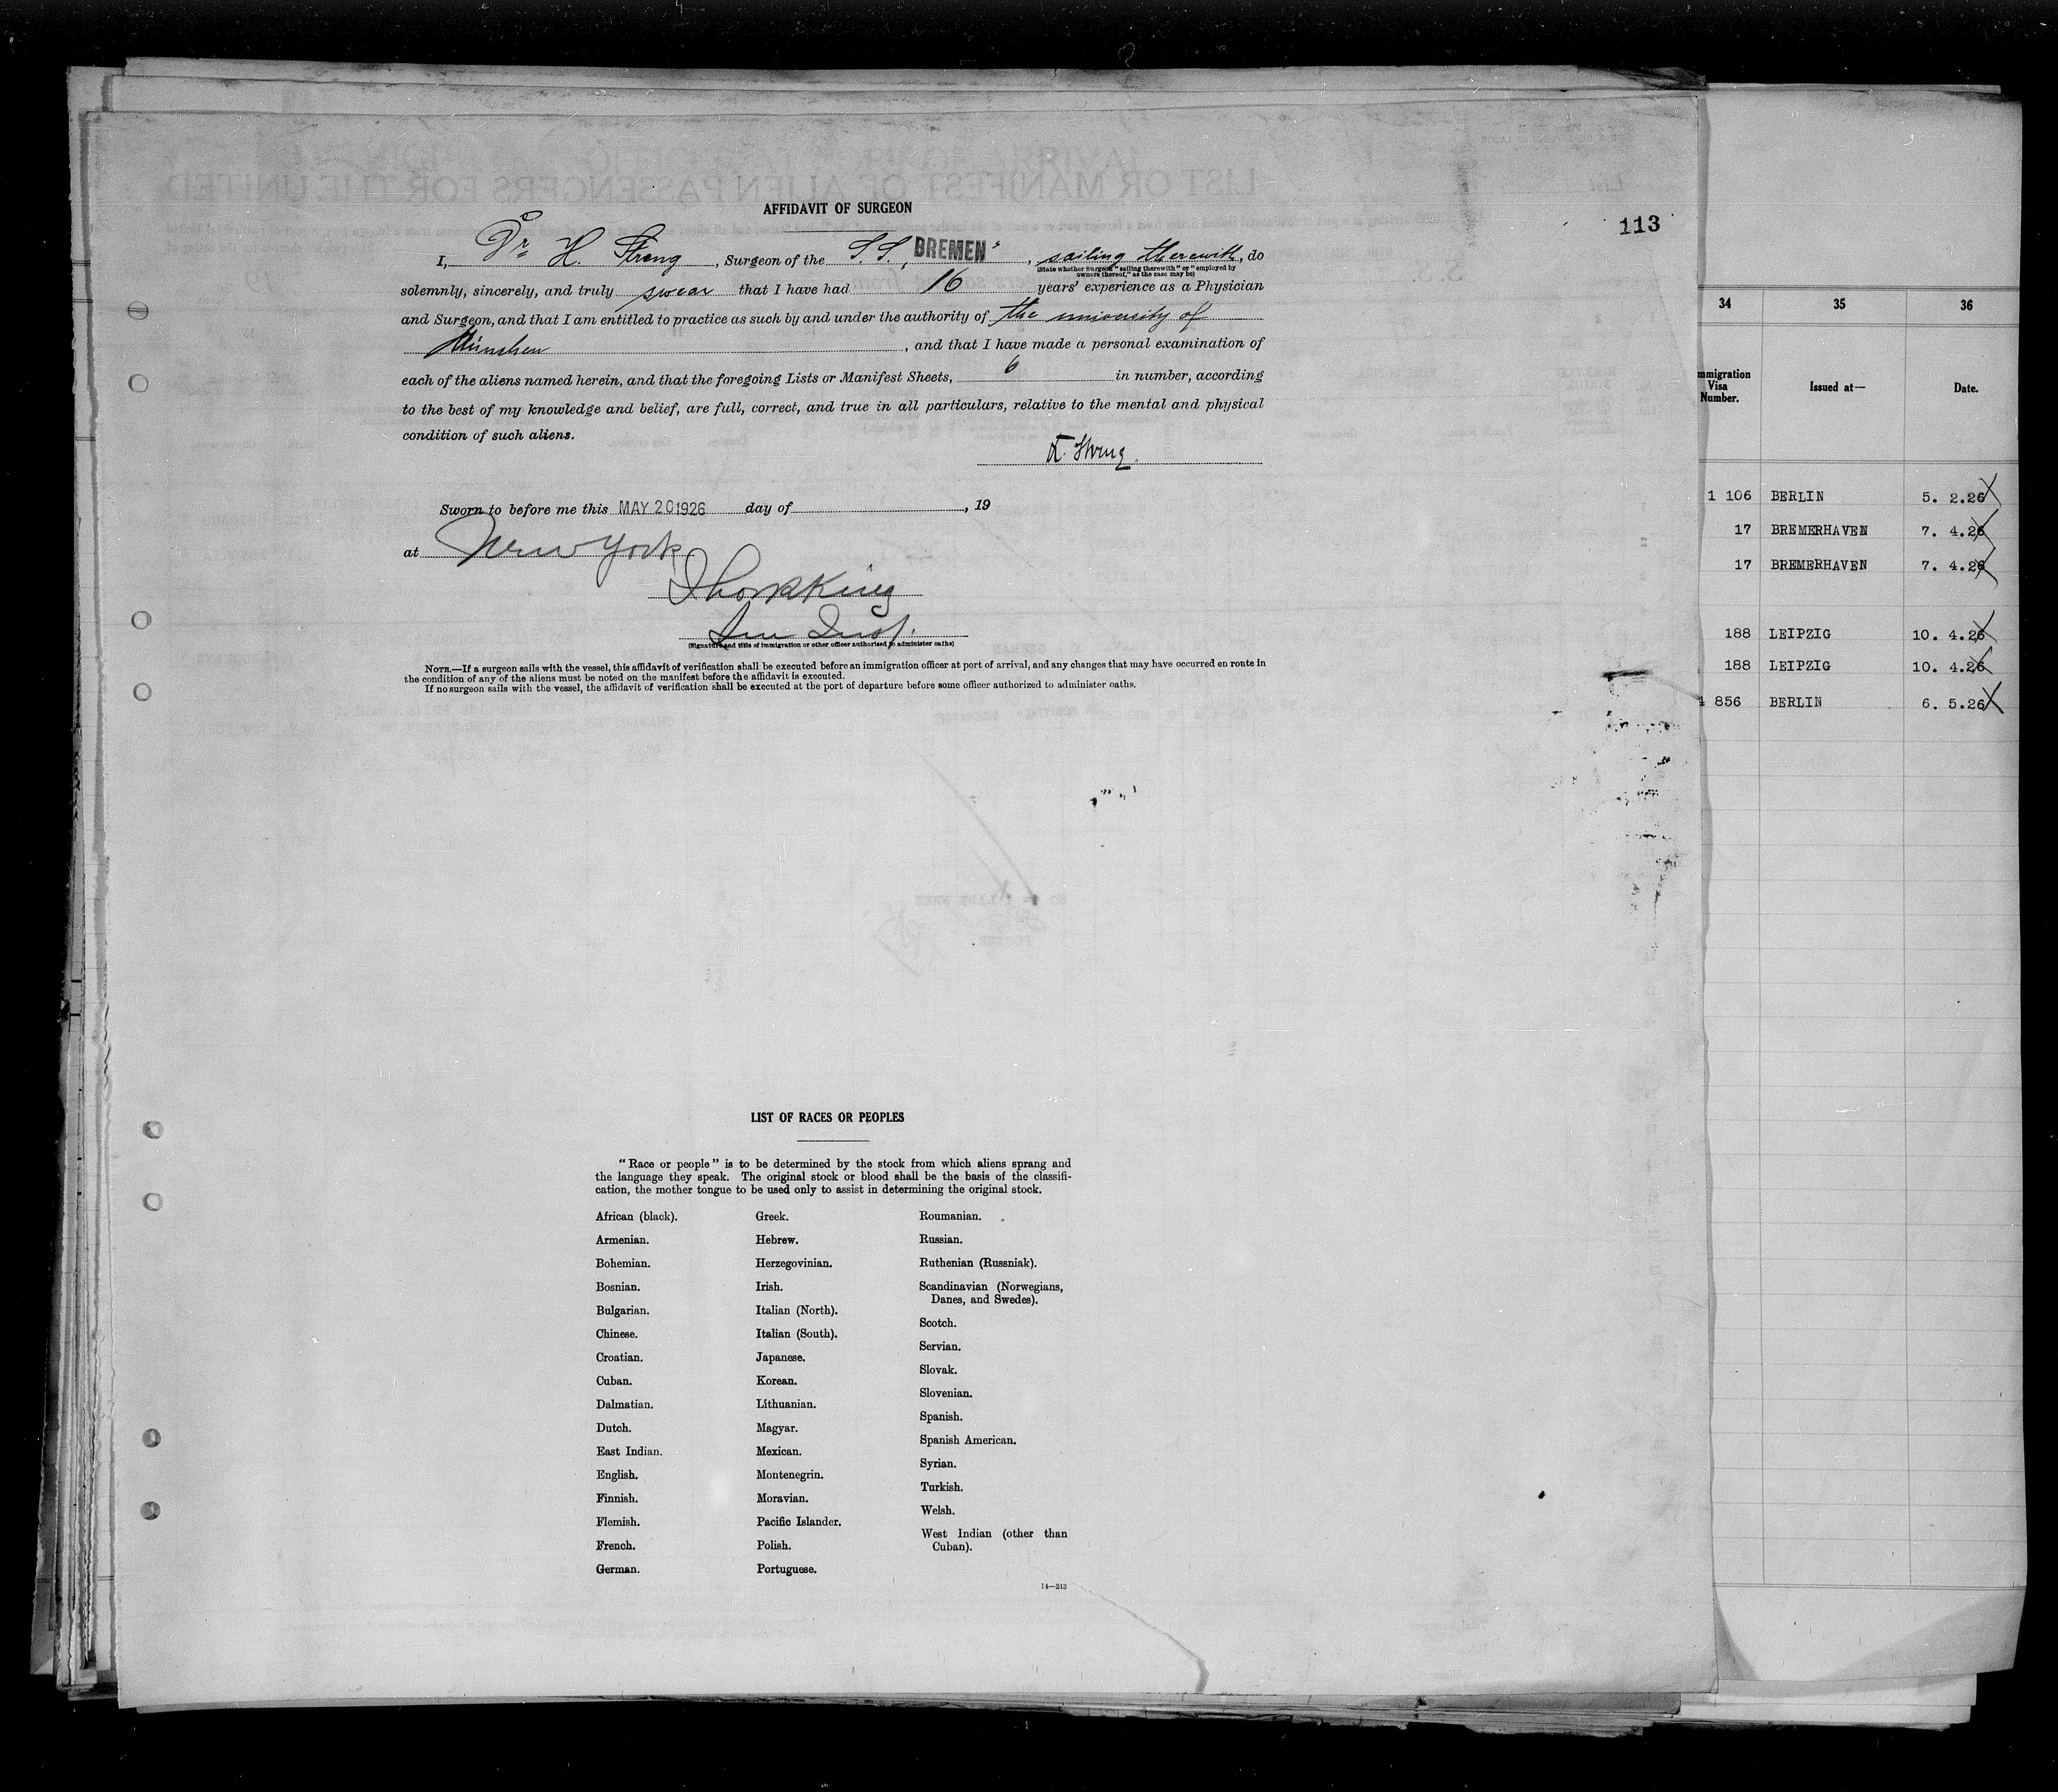 AFFIDAVIT OF SURGEON
113
I, Dr H. Streng, Surgeon of the S.S. „BREMEN“, sailing therewith, do
(State whether Surgeon "sailing therewith" or "employed by
owners thereof," as the case may be)
solemnly, sincerely, and truly swear that I have had 16 years' experience as a Physician
and Surgeon, and that I am entitled to practice as such by and under the authority of the university of
München, and that I have made a personal examination of
each of the aliens named herein, and that the foregoing Lists or Manifest Sheets, 6 in number, according
to the best of my knowledge and belief, are full, correct, and true in all particulars, relative to the mental and physical
condition of such aliens.
H. Streng.
Sworn to before me this MAY 20 1926 day of , 19
at New York
(Signature and title of immigration or other officer authorized to administer oaths)
NOTE.—If a surgeon sails with the vessel, this affidavit of verification shall be executed before an immigration officer at port of arrival, and any changes that may have occurred en route in
the condition of any of the aliens must be noted on the manifest before the affidavit is executed.
If no surgeon sails with the vessel, the affidavit of verification shall be executed at the port of departure before some officer authorized to administer oaths.
LIST OF RACES OR PEOPLES
"Race or people" is to be determined by the stock from which aliens sprang and
the language they speak. The original stock or blood shall be the basis of the classifi-
cation, the mother tongue to be used only to assist in determining the original stock.
African (black).
Armenian.
Bohemian.
Bosnian.
Bulgarian.
Chinese.
Croatian.
Cuban.
Dalmatian.
Dutch.
East Indian.
English.
Finnish.
Flemish.
French.
German.
Greek.
Hebrew.
Herzegovinian.
Irish.
Italian (North).
Italian (South).
Japanese.
Korean.
Lithuanian.
Magyar.
Mexican.
Montenegrin.
Moravian.
Pacific Islander.
Polish.
Portuguese.
Roumanian.
Russian.
Ruthenian (Russniak).
Scandinavian (Norwegians,
Danes, and Swedes).
Scotch.
Servian.
Slovak.
Slovenian.
Spanish.
Spanish American.
Syrian.
Turkish.
Welsh.
West Indian (other than
Cuban).
14—213
34 35 36
mmigration
Visa
Number.
Issued at—
Date.
1 106 BERLIN 5. 2.26
17 BREMERHAVEN 7. 4.26
17 BREMERHAVEN 7. 4.26
188 LEIPZIG 10. 4.26
188 LEIPZIG 10. 4.26
856 BERLIN 6. 5.26